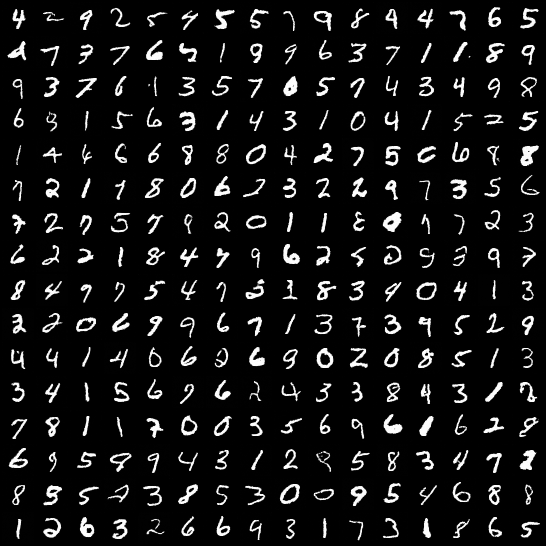 4 2 9 2 5 4 5 5 7 9 8 9 4 7 6 5
4 7 3 7 6 5 1 9 9 6 3 7 1 1 8 9
9 3 7 6 1 3 5 7 0 5 7 4 3 4 9 8
6 8 1 5 6 3 1 4 3 1 0 4 1 5 2 5
1 4 6 6 6 8 8 0 4 2 7 5 0 6 8 8
7 2 1 7 8 0 6 2 3 2 2 9 7 3 5 6
7 2 7 5 7 9 2 0 1 1 8 0 7 7 2 3
6 2 2 1 8 4 7 9 6 2 5 0 9 3 9 7
8 4 9 7 5 4 7 3 1 8 3 9 0 4 1 3
3 2 0 6 9 9 6 7 1 3 7 3 9 5 2 9
4 4 1 4 0 6 2 6 9 0 2 0 8 5 1 3
3 4 1 5 6 9 6 2 4 3 3 8 4 3 1 2
7 8 1 1 7 0 0 3 5 6 9 6 1 6 2 8
6 9 5 9 9 4 3 1 2 9 5 8 3 4 7 2
8 5 5 2 3 8 5 3 0 0 9 5 4 6 8 8
1 2 6 3 2 6 6 9 3 1 7 3 1 8 6 5